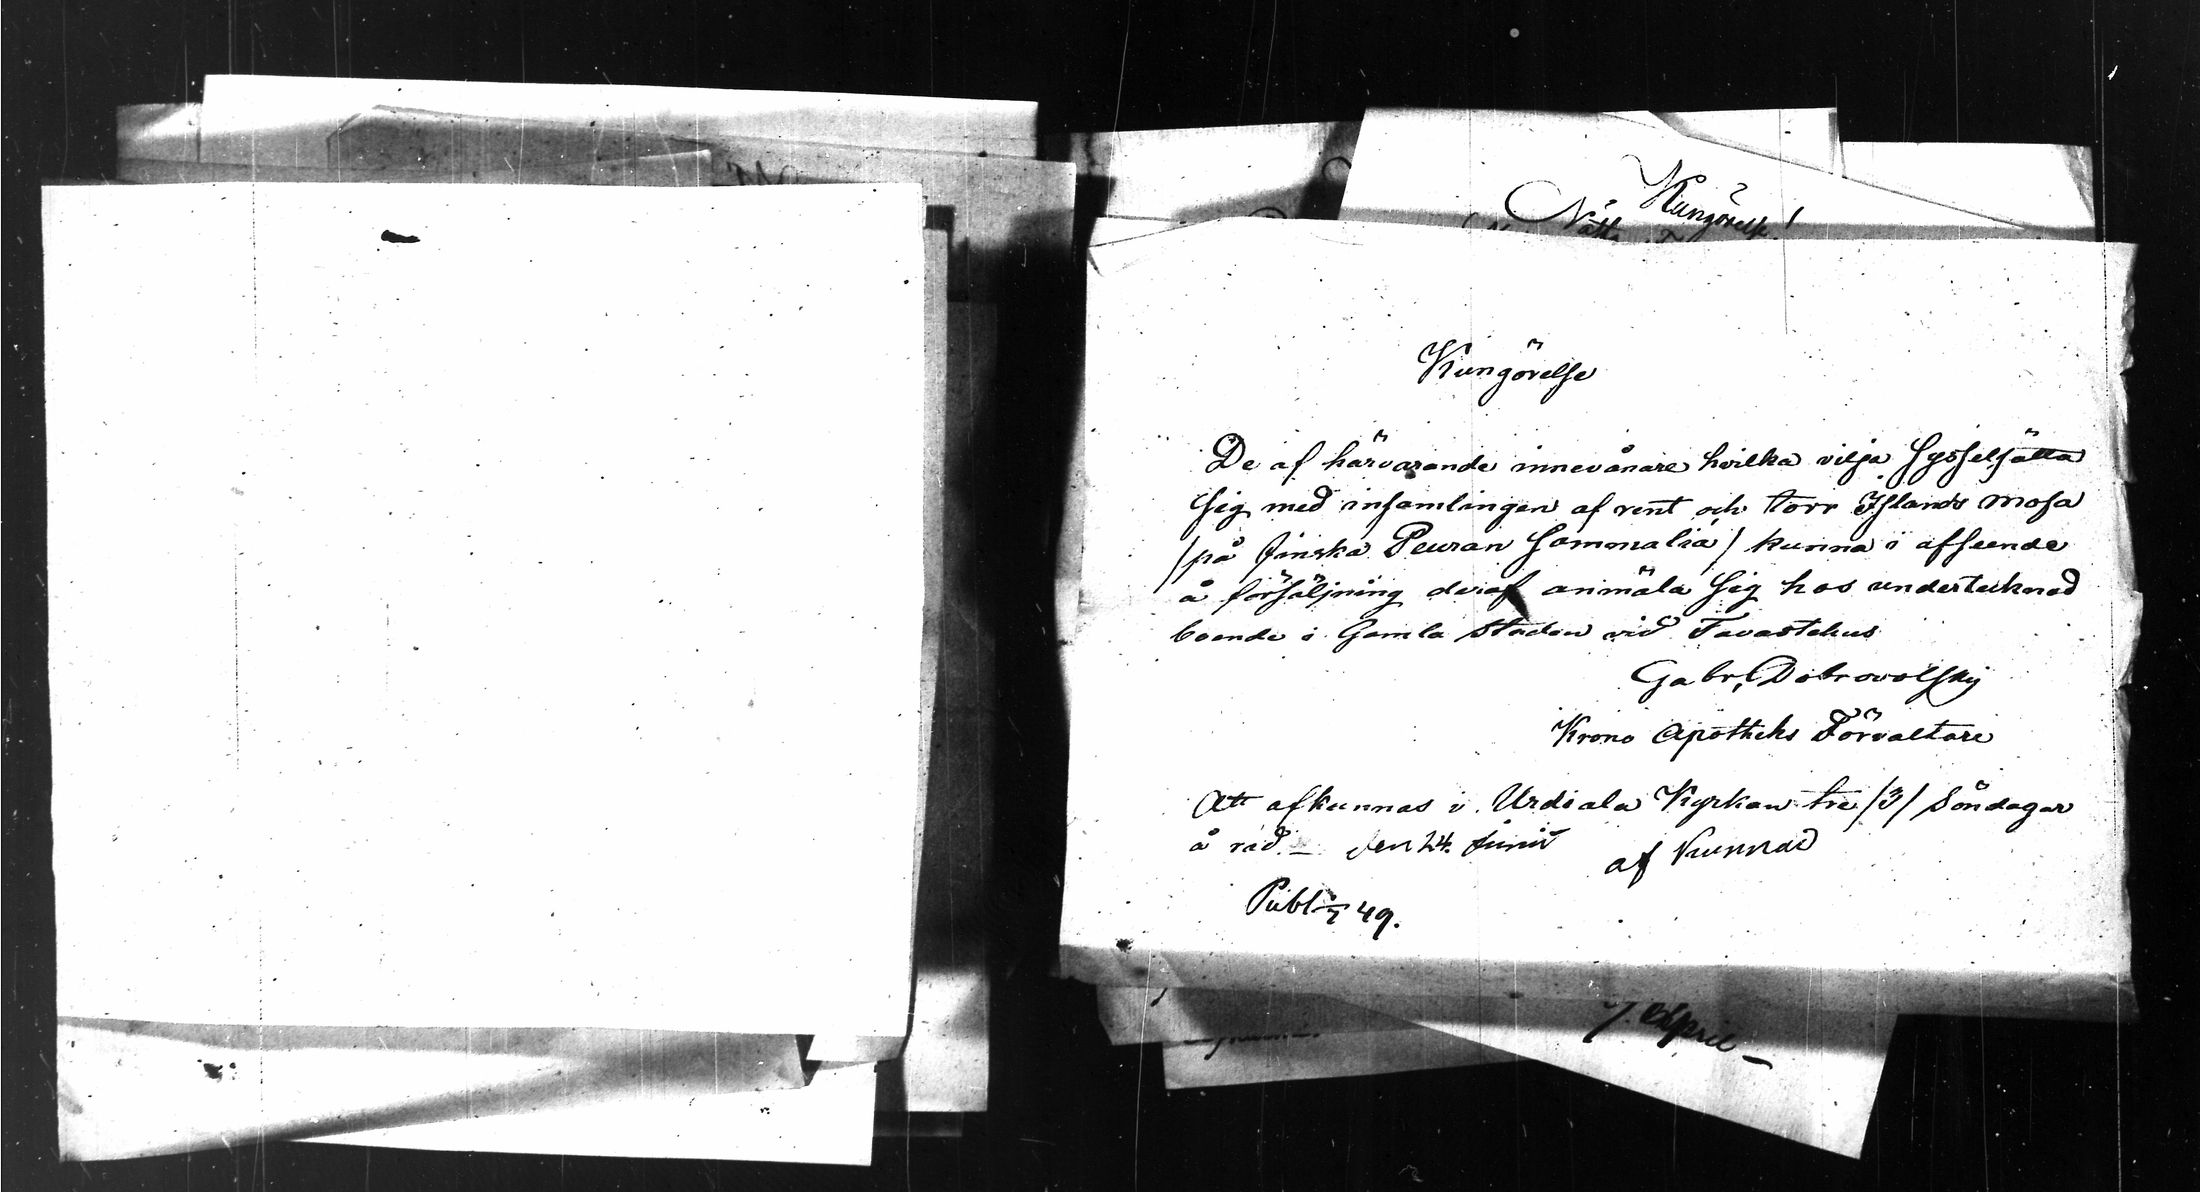 Kungörelse!
Kungörelse
De af härvarande innevånare hvilka vilja sysselsätta
sig med insamlingen af rent och torr Islands mosa
/på finska Peuran Sammalia/ kunna i afseende
å försäljning deraf anmäla sig hos undertecknad
boende i Gamla Staden vid Tavastehus
Gabr. Dobrovolsky
Krono Apotheks Förvaltare
Att afkunnas i Urdiala Kyrkan tre /3/ Söndagar
å rad den 24. Junii
af Kunnad
Publ 49.
7. April